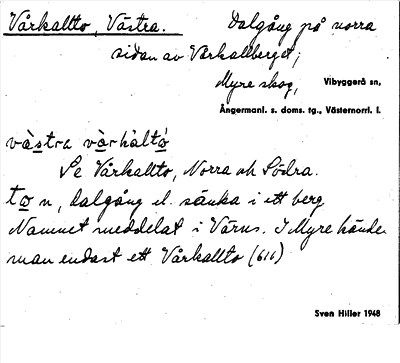 Vårkallto, Västra.
Dalgång på norra
sidan av Vårkallberget;
Myre skog, Vibyggerå sn,
Ångermanl. s. doms. tg., Västernorrl. l.
västra vårkàltó
Se Vårkallto, Norra och Södra.
to n, dalgång el. sänka i ett berg
Namnet meddelat i Värns. I Myre kände
man endast ett Vårkallto (616)
Sven Hiller 1948